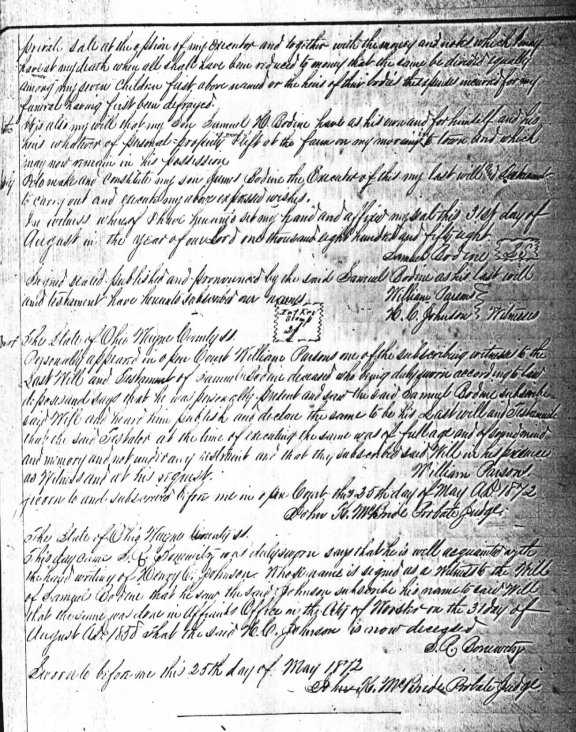 private sale at the option of my executor and together with the money and notes which I may
have at my death when all shall have been reduced to money that the same be divided equally
among my seven children first above named or the heirs of their bodies the expenses incurred for my
funeral having first been defrayed.
It is also my will that my Son Samuel H. Bodine have as his own and for himself and his
heirs whatever of personal property I left at the farm on my moving to town and which
may now remain in his possession
I do make and constitute my son James Bodine the Executor of this my last will and Testament
to carry out and execute my above expressed wishes.
In witness whereof I have hereunto set my hand and affixed my seal this 31st day of
August in the year of our Lord one thousand eight hundred and fifty eight.
Samuel Bodine
Signed sealed published and pronounced by the said Samuel Bodine as his last will
and testament have hereunto subscribed our names
William Parsons
H. C. Johnson Witnesses
Int Rev
Stamp
The State of Ohio Wayne County ss.
Personally appeared in open Court William Parsons one of the subscribing witnesses to the
Last Will and Testament of Samuel Bodine deceased who being duly sworn according to law
deposes and says that he was personally present and saw the said Samuel Bodine subscribe
said Will and heard him publish and declare the same to be his Last will and Testament
that the said Testator at the time of executing the same was of full age and of sound mind
and memory and not under any restraint and that they subscribed said Will in his presence
as Witness and at his request.
William Parsons
Sworn to and subscribed before me in open Court this 25th day of May AD. 1872
John K. McBride Probate Judge.
The State of Ohio Wayne County ss.
This day came S. C. was duly sworn says that he is well acquainted with
the hand writing of Henry C. Johnson. Whose name is signed as a Witness to the Will
of Samuel Bodine that he saw the said Johnson subscribe his name to said Will
that the same was done in Affiants Office in the City of Wooster on the 31 day of
August AD. 1858 that the said H. C. Johnson is now deceased
Sworn to before me this 25th day of May 1872
John K. McBride Probate Judge